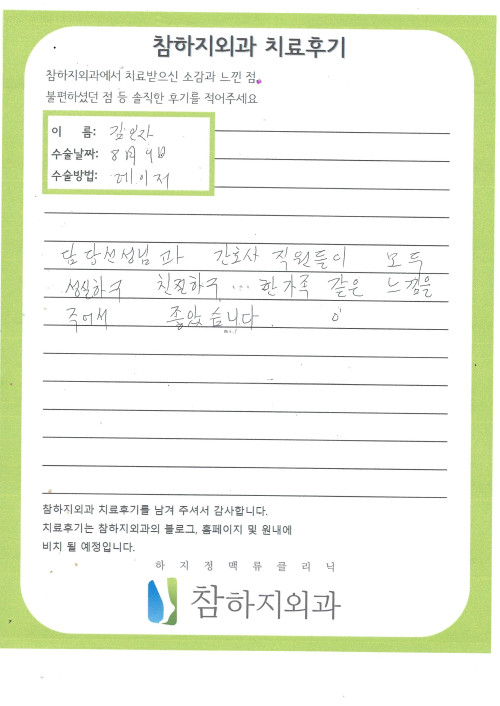 참하지외과 치료후기
참하지외과에서 치료받으신 소감과 느낀 점,
불편하셨던 점 등 솔직한 후기를 적어주세요
이 름: 김인자
수술날짜: 8월 9일
수술방법: 레이저
담당선생님과 간호사 직원들이 모두
성실하구 친절하구 ... 한가족 같은 느낌을
주어서 좋았습니다.
참하지외과 치료후기를 남겨 주셔서 감사합니다.
치료후기는 참하지외과의 블로그, 홈페이지 및 원내에
비치 될 예정입니다.
하지정맥류클리닉
참하지외과